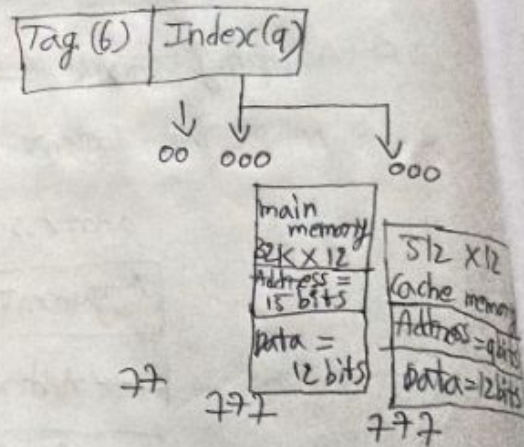 Tag (6) Index (9)
00 000 000
main
memory
32K X 12
Address =
15 bits
Data =
12 bits
512 X 12
Cache memory
Address = 9bits
Data = 12bits
77 777 777